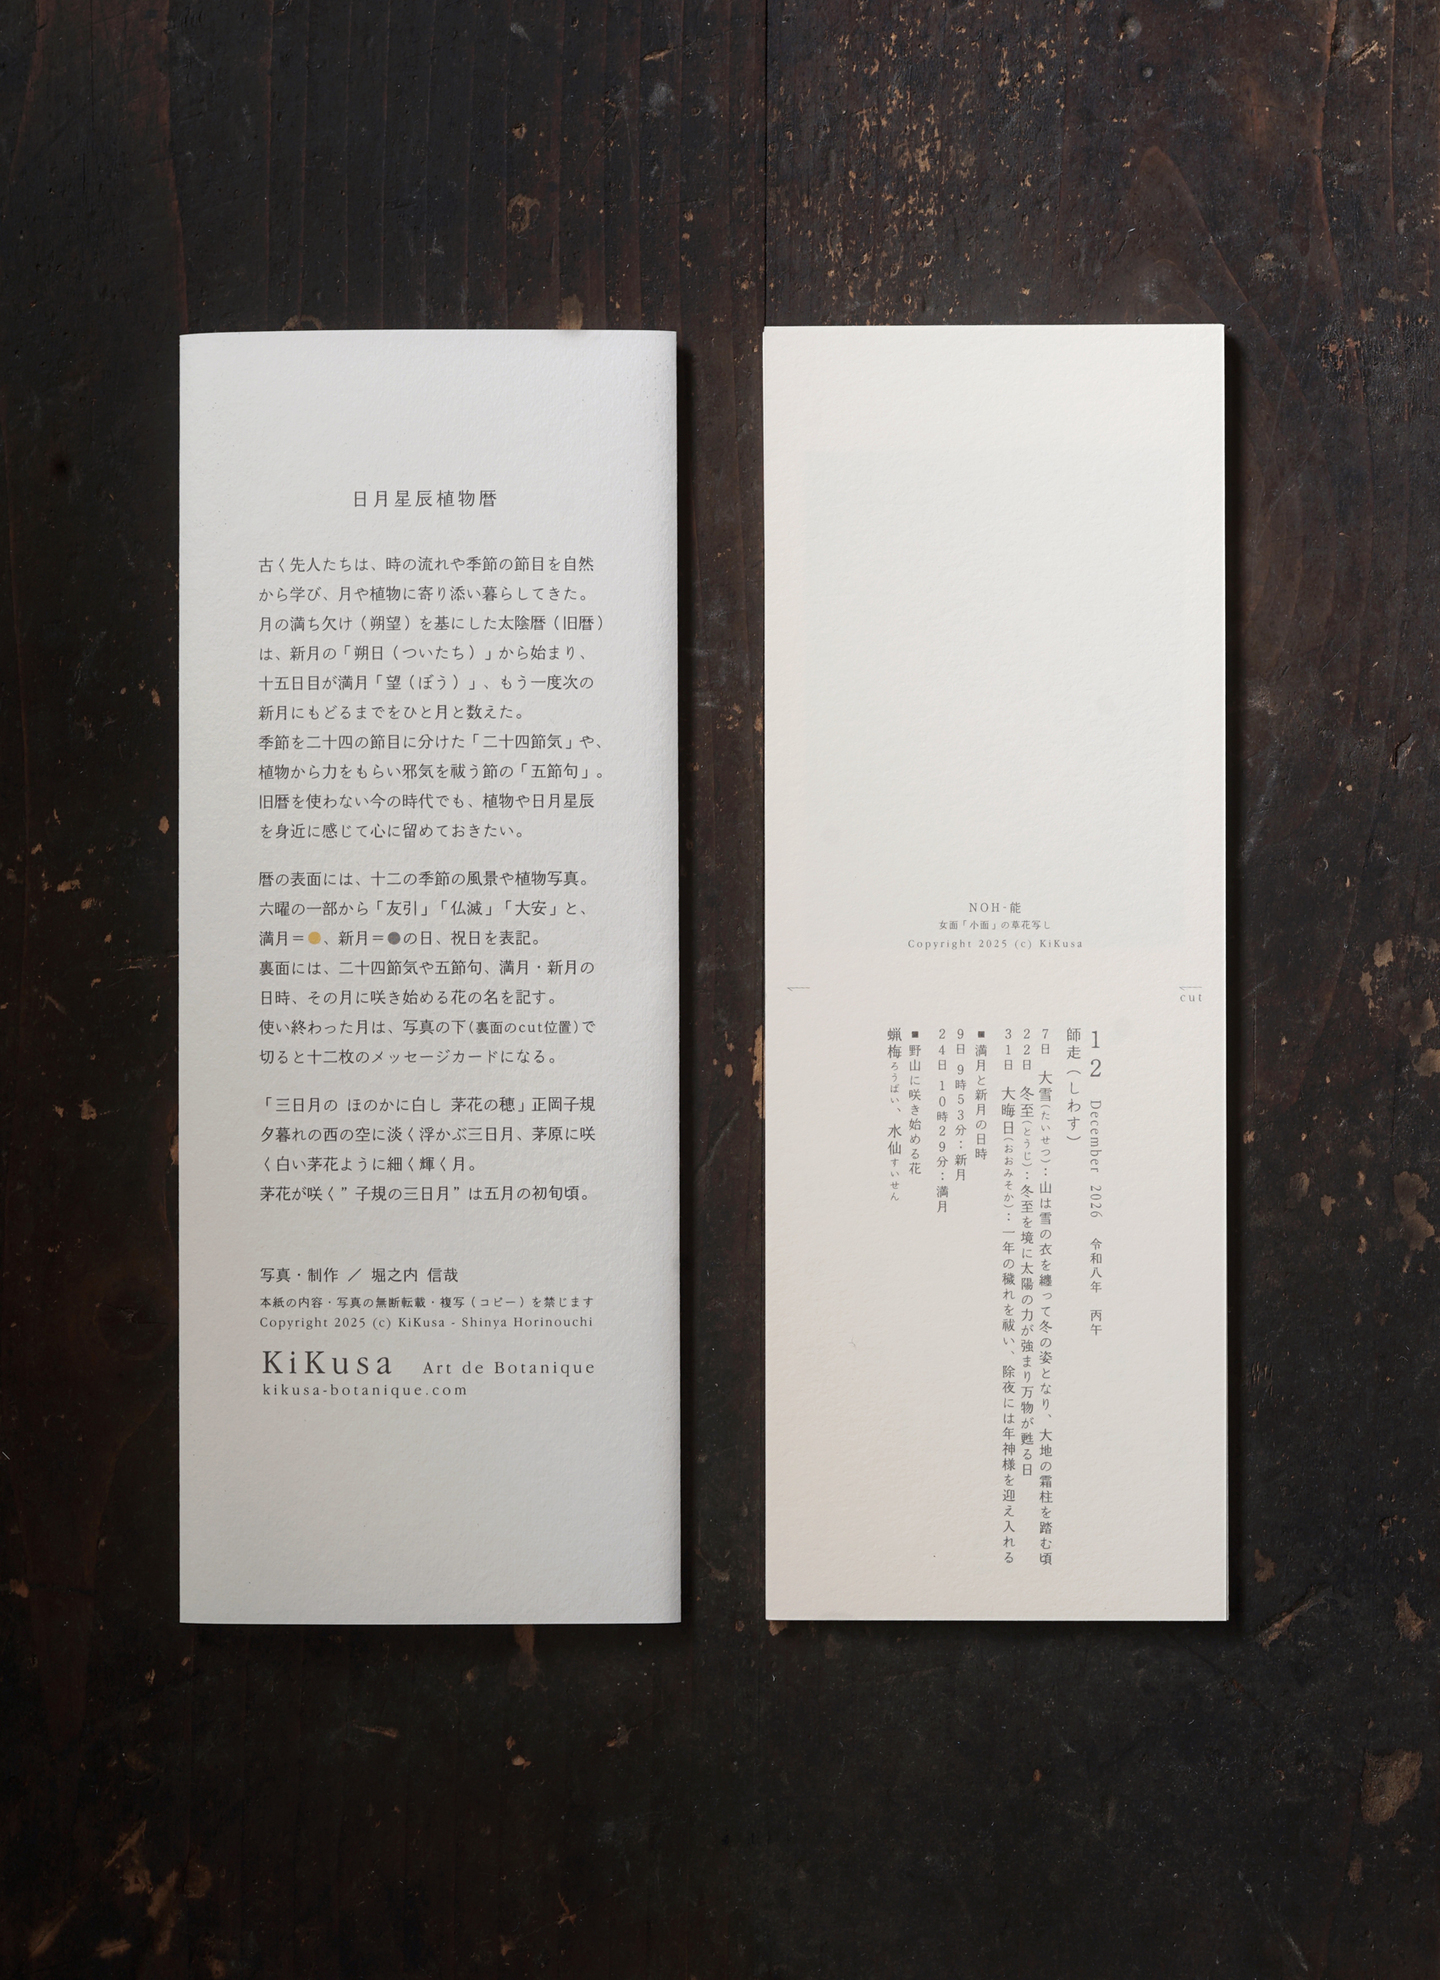 日月星辰植物暦
古く先人たちは、時の流れや季節の節目を自然
から学び、月や植物に寄り添い暮らしてきた。
月の満ち欠け（朔望）を基にした太陰暦（旧暦）
は、新月の「朔日（ついたち）」から始まり、
十五日目が満月「望（ぼう）」、もう一度次の
新月にもどるまでをひと月と数えた。
季節を二十四の節目に分けた「二十四節気」や、
植物から力をもらい邪気を祓う節の「五節句」。
旧暦を使わない今の時代でも、植物や日月星辰
を身近に感じて心に留めておきたい。
暦の表面には、十二の季節の風景や植物写真。
六曜の一部から「友引」「仏滅」「大安」と、
満月＝●、新月＝●の日、祝日を表記。
裏面には、二十四節気や五節句、満月・新月の
日時、その月に咲き始める花の名を記す。
使い終わった月は、写真の下（裏面のcut位置）で
切ると十二枚のメッセージカードになる。
「三日月の ほのかに白し 茅花の穂」正岡子規
夕暮れの西の空に淡く浮かぶ三日月、茅原に咲
く白い茅花ように細く輝く月。
茅花が咲く”子規の三日月”は五月の初旬頃。
写真・制作 ／ 堀之内 信哉
本紙の内容・写真の無断転載・複写（コピー）を禁じます
Copyright 2025 (c) KiKusa - Shinya Horinouchi
KiKusa Art de Botanique
kikusa-botanique.com
NOH-能
女面「小面」の草花写し
Copyright 2025 (c) KiKusa
cut
12 December 2026 令和八年 丙午
師走（しわす）
7日 大雪（たいせつ）：山は雪の衣を纏って冬の姿となり、大地の霜柱を踏む頃
22日 冬至（とうじ）：冬至を境に太陽の力が強まり万物が甦る日
31日 大晦日（おおみそか）：一年の穢れを祓い、除夜には年神様を迎え入れる
■満月と新月の日時
9日 9時53分：新月
24日 10時29分：満月
■野山に咲き始める花
蝋梅ろうばい、水仙すいせん